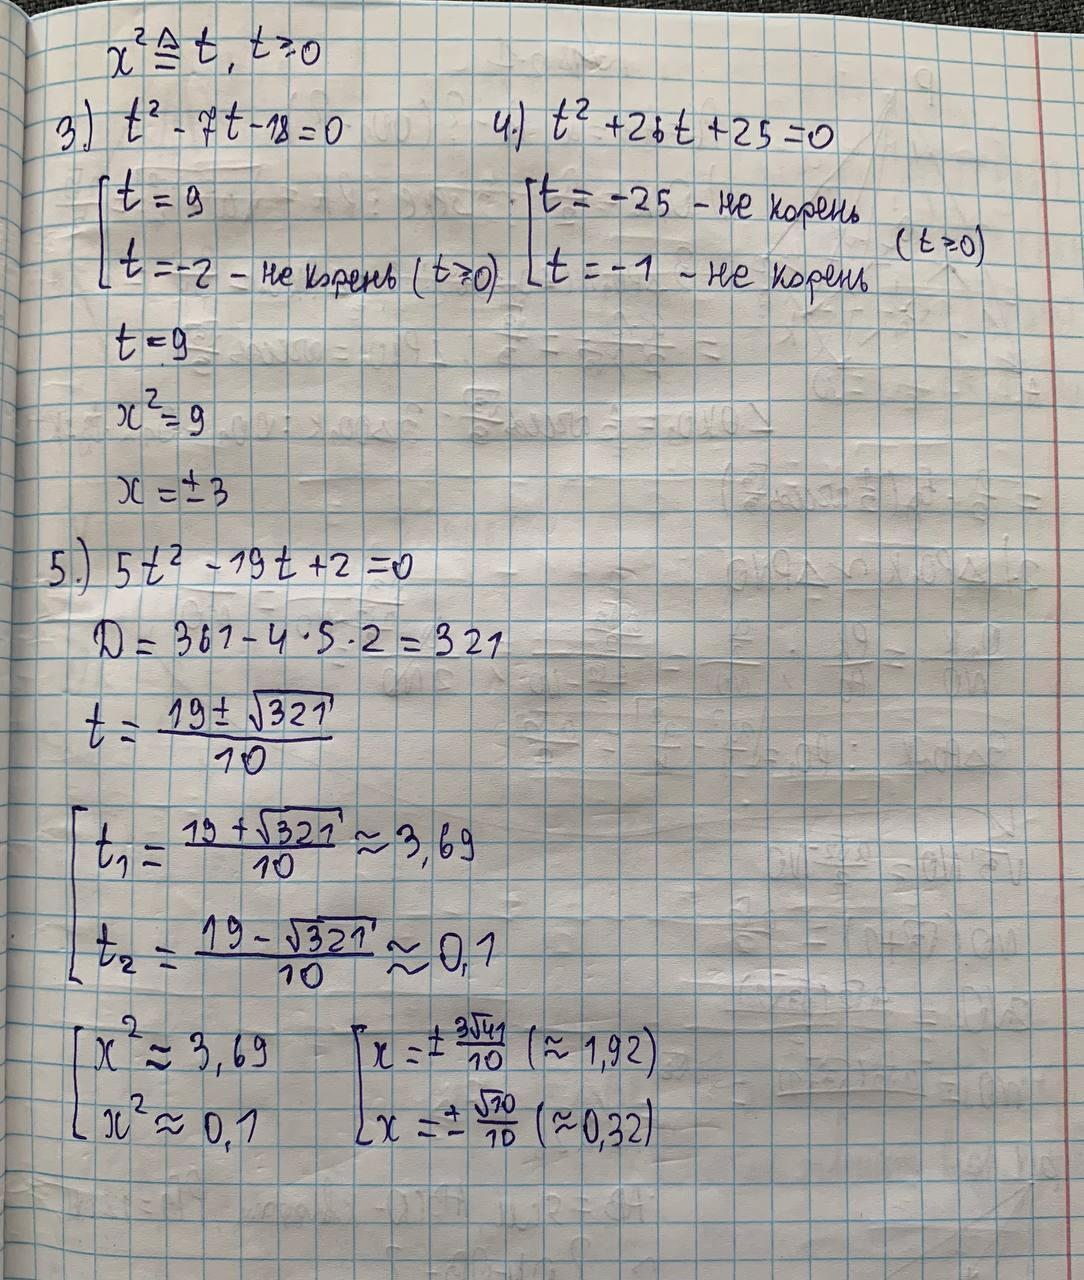 x² ≜ t, t ≥ 0
3.) t² - 7t - 18 = 0
[ t = 9
[ t = -2 - не корень (t ≥ 0)
t = 9
x² = 9
x = ±3
4.) t² + 26t + 25 = 0
[ t = -25 - не корень
[ t = -1 - не корень
(t ≥ 0)
5.) 5t² - 19t + 2 = 0
D = 361 - 4 · 5 · 2 = 321
t = (19 ± √321)/10
[ t₁ = (19 + √321)/10 ≈ 3,69
[ t₂ = (19 - √321)/10 ≈ 0,1
[ x² ≈ 3,69
[ x² ≈ 0,1
[ x = ± 3√41/10 (≈ 1,92)
[ x = ± √10/10 (≈ 0,32)